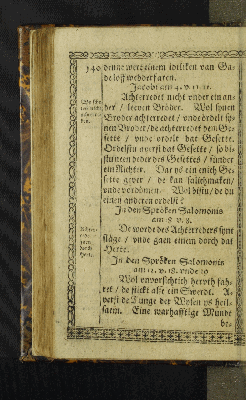 340
denne wert einem idtliken van Ga-
de loff wedderfaren.
Jacobi am 4. v. 11. 12.
Achterredet nicht vnder ein an-
der / leeven Bröder. Wol synen
Broder achterredet / vnde ordelt sy-
nen Broder / de achterredet dem Ge-
sette / vnde ordelt dat Gesette.
Ordelstu averst dat Gesette / so bi-
stu neen deder des Gesettes / sunder
ein Richter. Dar ys ein enich Ge-
sette gever / de kan salichmaken /
vnde vordömen. Wol bistu / de du
einen anderen ordelst?
In den Spröken Salomonis
am 18. v. 8.
De worde des Achterreders synt
slege / vnde gaen einem dorch dat
Herte.
In den Spröken Salomonis
am 12. v. 18. vnde 19
Wol vnvorsichtich heruth fah-
ret / de stickt alse ein Swerdt. A-
verst de Tunge der Wysen ys heil-
sam. Eine warhafftige Munde
be-
dorch
Herte.